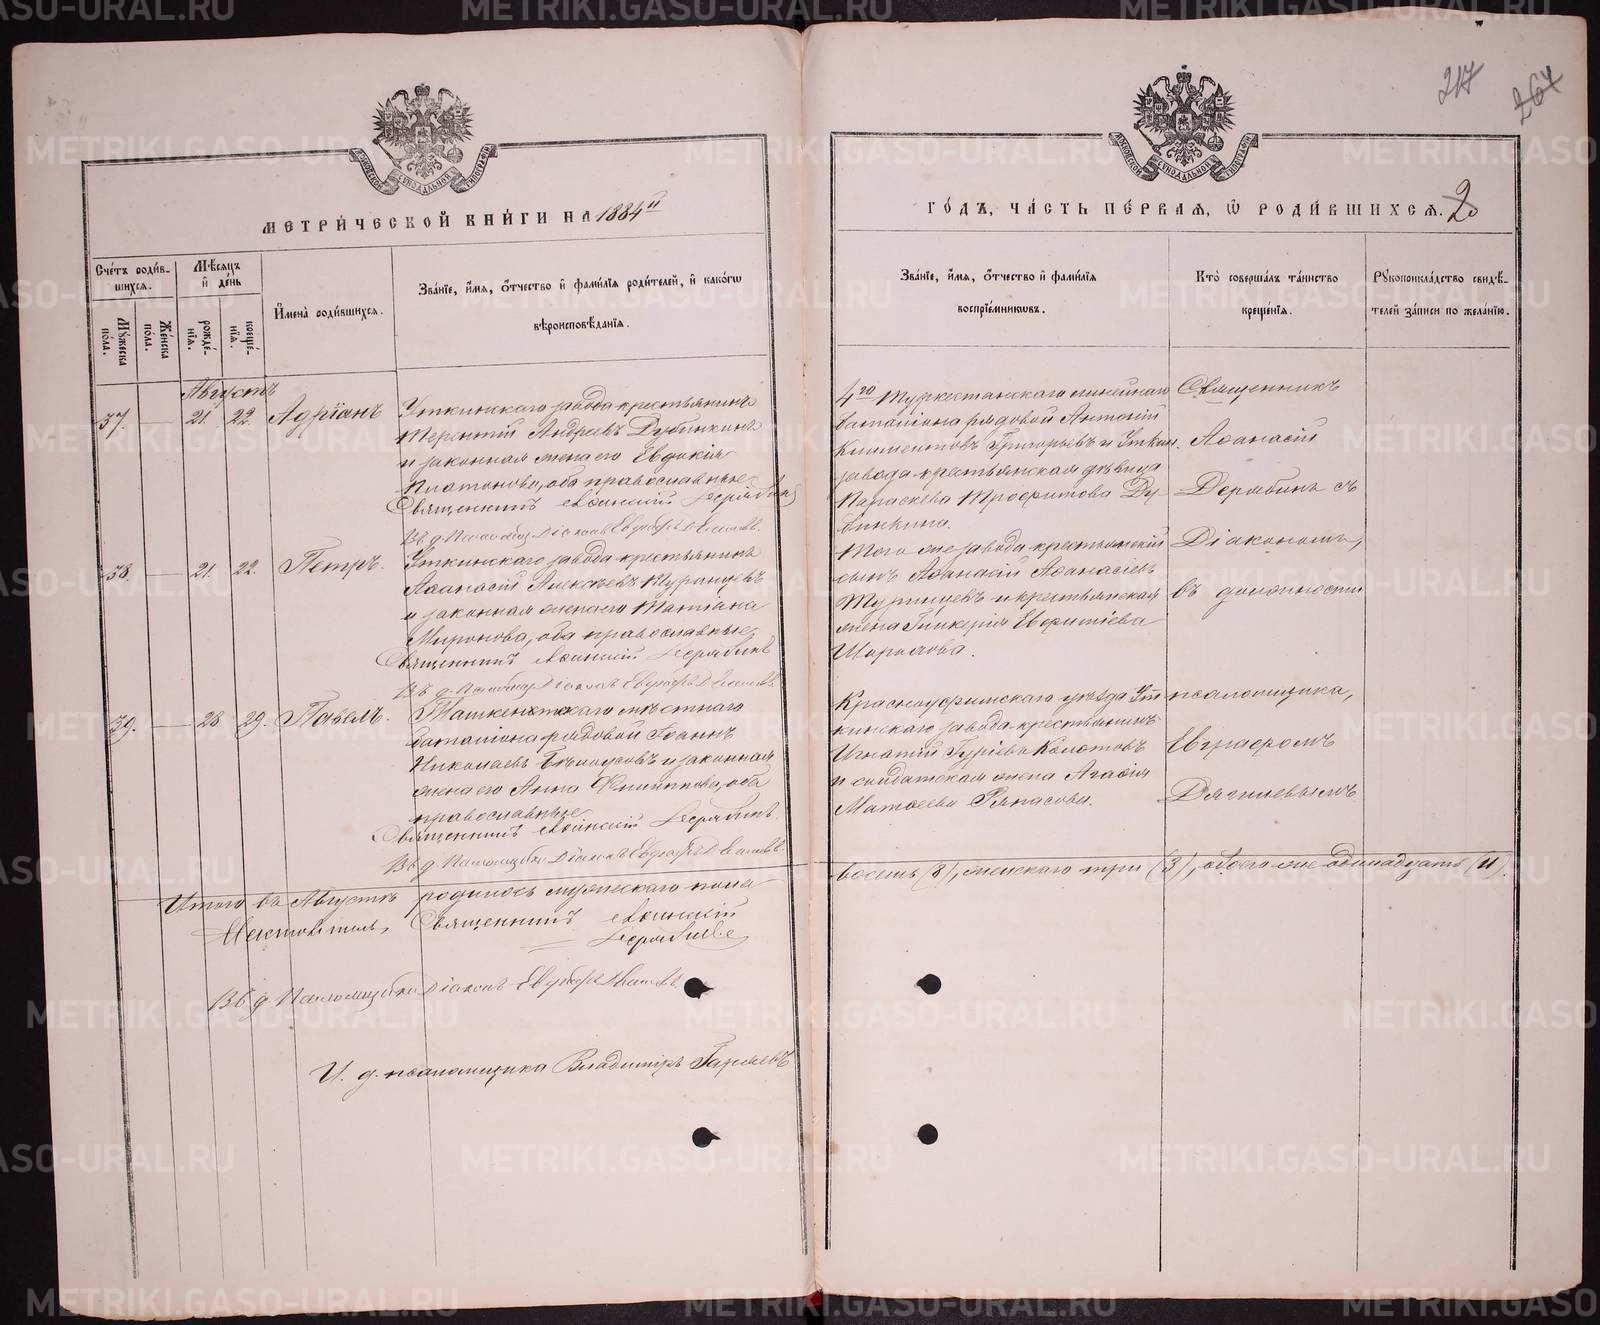 217
267
МЕТРИЧЕСКОЙ КНИГИ НА 1884й
ГОДЪ, ЧАСТЬ ПЕРВАЯ, Ѡ РОДИВШИХСЯ.
Счетъ родив-
шихся.
Мужеска
пола.
Женска
пола.
Мѣсяцъ
и день
рожде-
нія.
креще-
нія.
Имена родившихся.
Званіе, имя, отчество и фамилія родителей, и какогѡ
вѣроисповѣданія.
Званіе, имя, отчество и фамилія
воспріемниковъ.
Кто совершалъ таинство
крещенія.
Рукоприкладство свидѣ-
телей записи по желанію.
Августъ
37. — 21. 22. Адріанъ
Уткинскаго завода крестьянинъ
Терентій Андреевъ Дубинкинъ
и законная жена его Евдокія
Платонова, оба православные
Священникъ Аѳанасій Дерябинъ
Въ д. Псаломщ. Діаконъ Евграфъ
4го Туркестанскаго линейнаго
баталіона рядовой Антоній
Климентовъ Григорьевъ и Уткин.
завода крестьянская дѣвица
Параскева Трофимова Ду-
бинкина.
Священникъ
Аѳанасій
Дерябинъ съ
38. — 21. 22. Петръ.
Уткинскаго завода крестьянинъ
Аѳанасій Алексѣевъ Турицевъ
и законная жена его Татіана
Миронова, оба православные
Священникъ Аѳанасій Дерябинъ
Въ д. Псаломщ. Діаконъ Евграфъ
Того же завода крестьянскій
сынъ Аѳанасій Аѳанасіевъ
Турицевъ и крестьянская
жена Гликерія Евфиміева
Діакономъ,
въ должности
39. — 28 29. Павелъ.
Ташкентскаго мѣстнаго
баталіона рядовой Іоаннъ
Николаевъ Бѣлоусовъ и законная
жена его Анна Филиппова, оба
православные
Священникъ Аѳанасій Дерябинъ.
Въ д. Псаломщ. Діаконъ Евграфъ
Красноуфимскаго уѣзда Ут-
кинскаго завода крестьянинъ
Игнатій Гуріевъ Колотовъ
и солдатская жена Агафія
Матѳеева
псаломщика,
Евграфомъ
Дягилевымъ
Итого въ Августѣ родилось мужескаго пола
восемь (8), женскаго три (3), обоего же одинадцать (11).
Священникъ Аѳанасій
Дерябинъ
Въ д. Псаломщика Діаконъ Евграфъ
И. д. псаломщика Владиміръ
METRIKI.GASO-URAL.RU